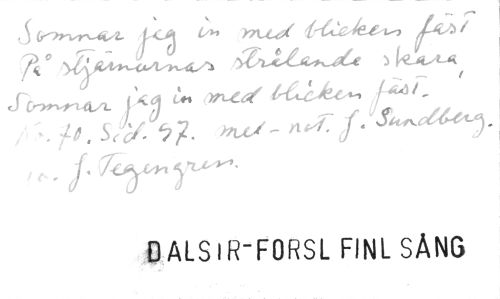 Somnar jag in med blicken fäst
På stjärnornas strålande skara,
Somnar jag in med blicken fäst.
No. 70. Sid. 97. mel-not. J. Sundberg.
J. Tegengren.
DALSIR-FORSL FINL SÅNG